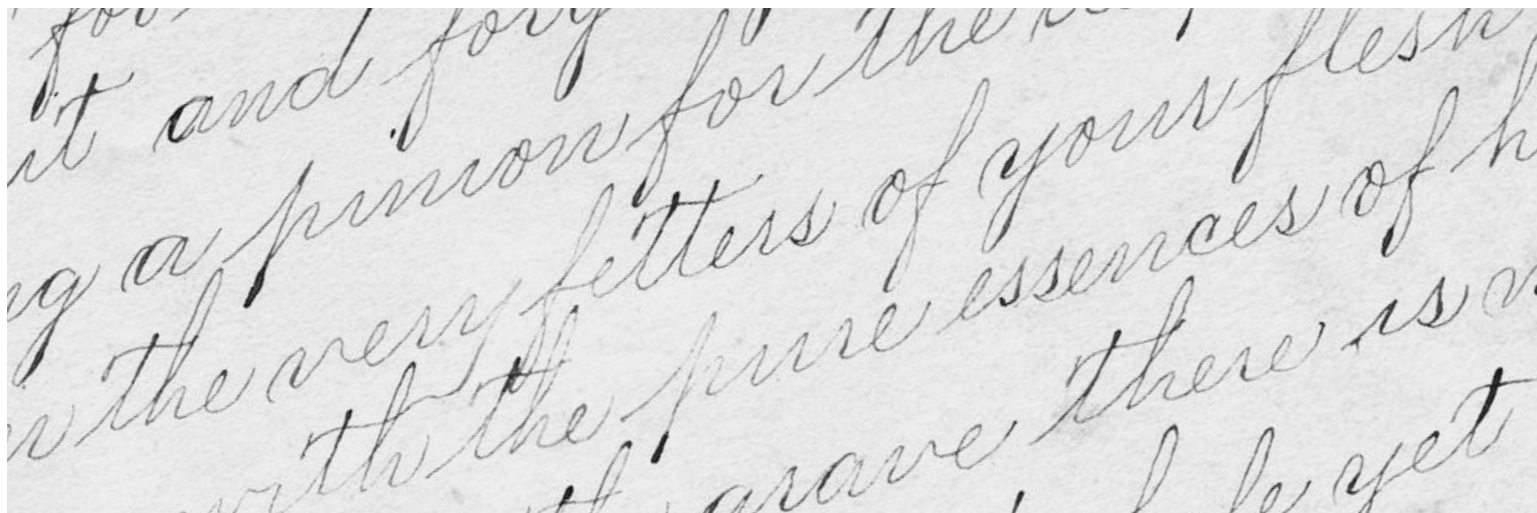 for
it and
a pinion for the
the very fetters of your flesh
with the pure essences of
grave there is
yet